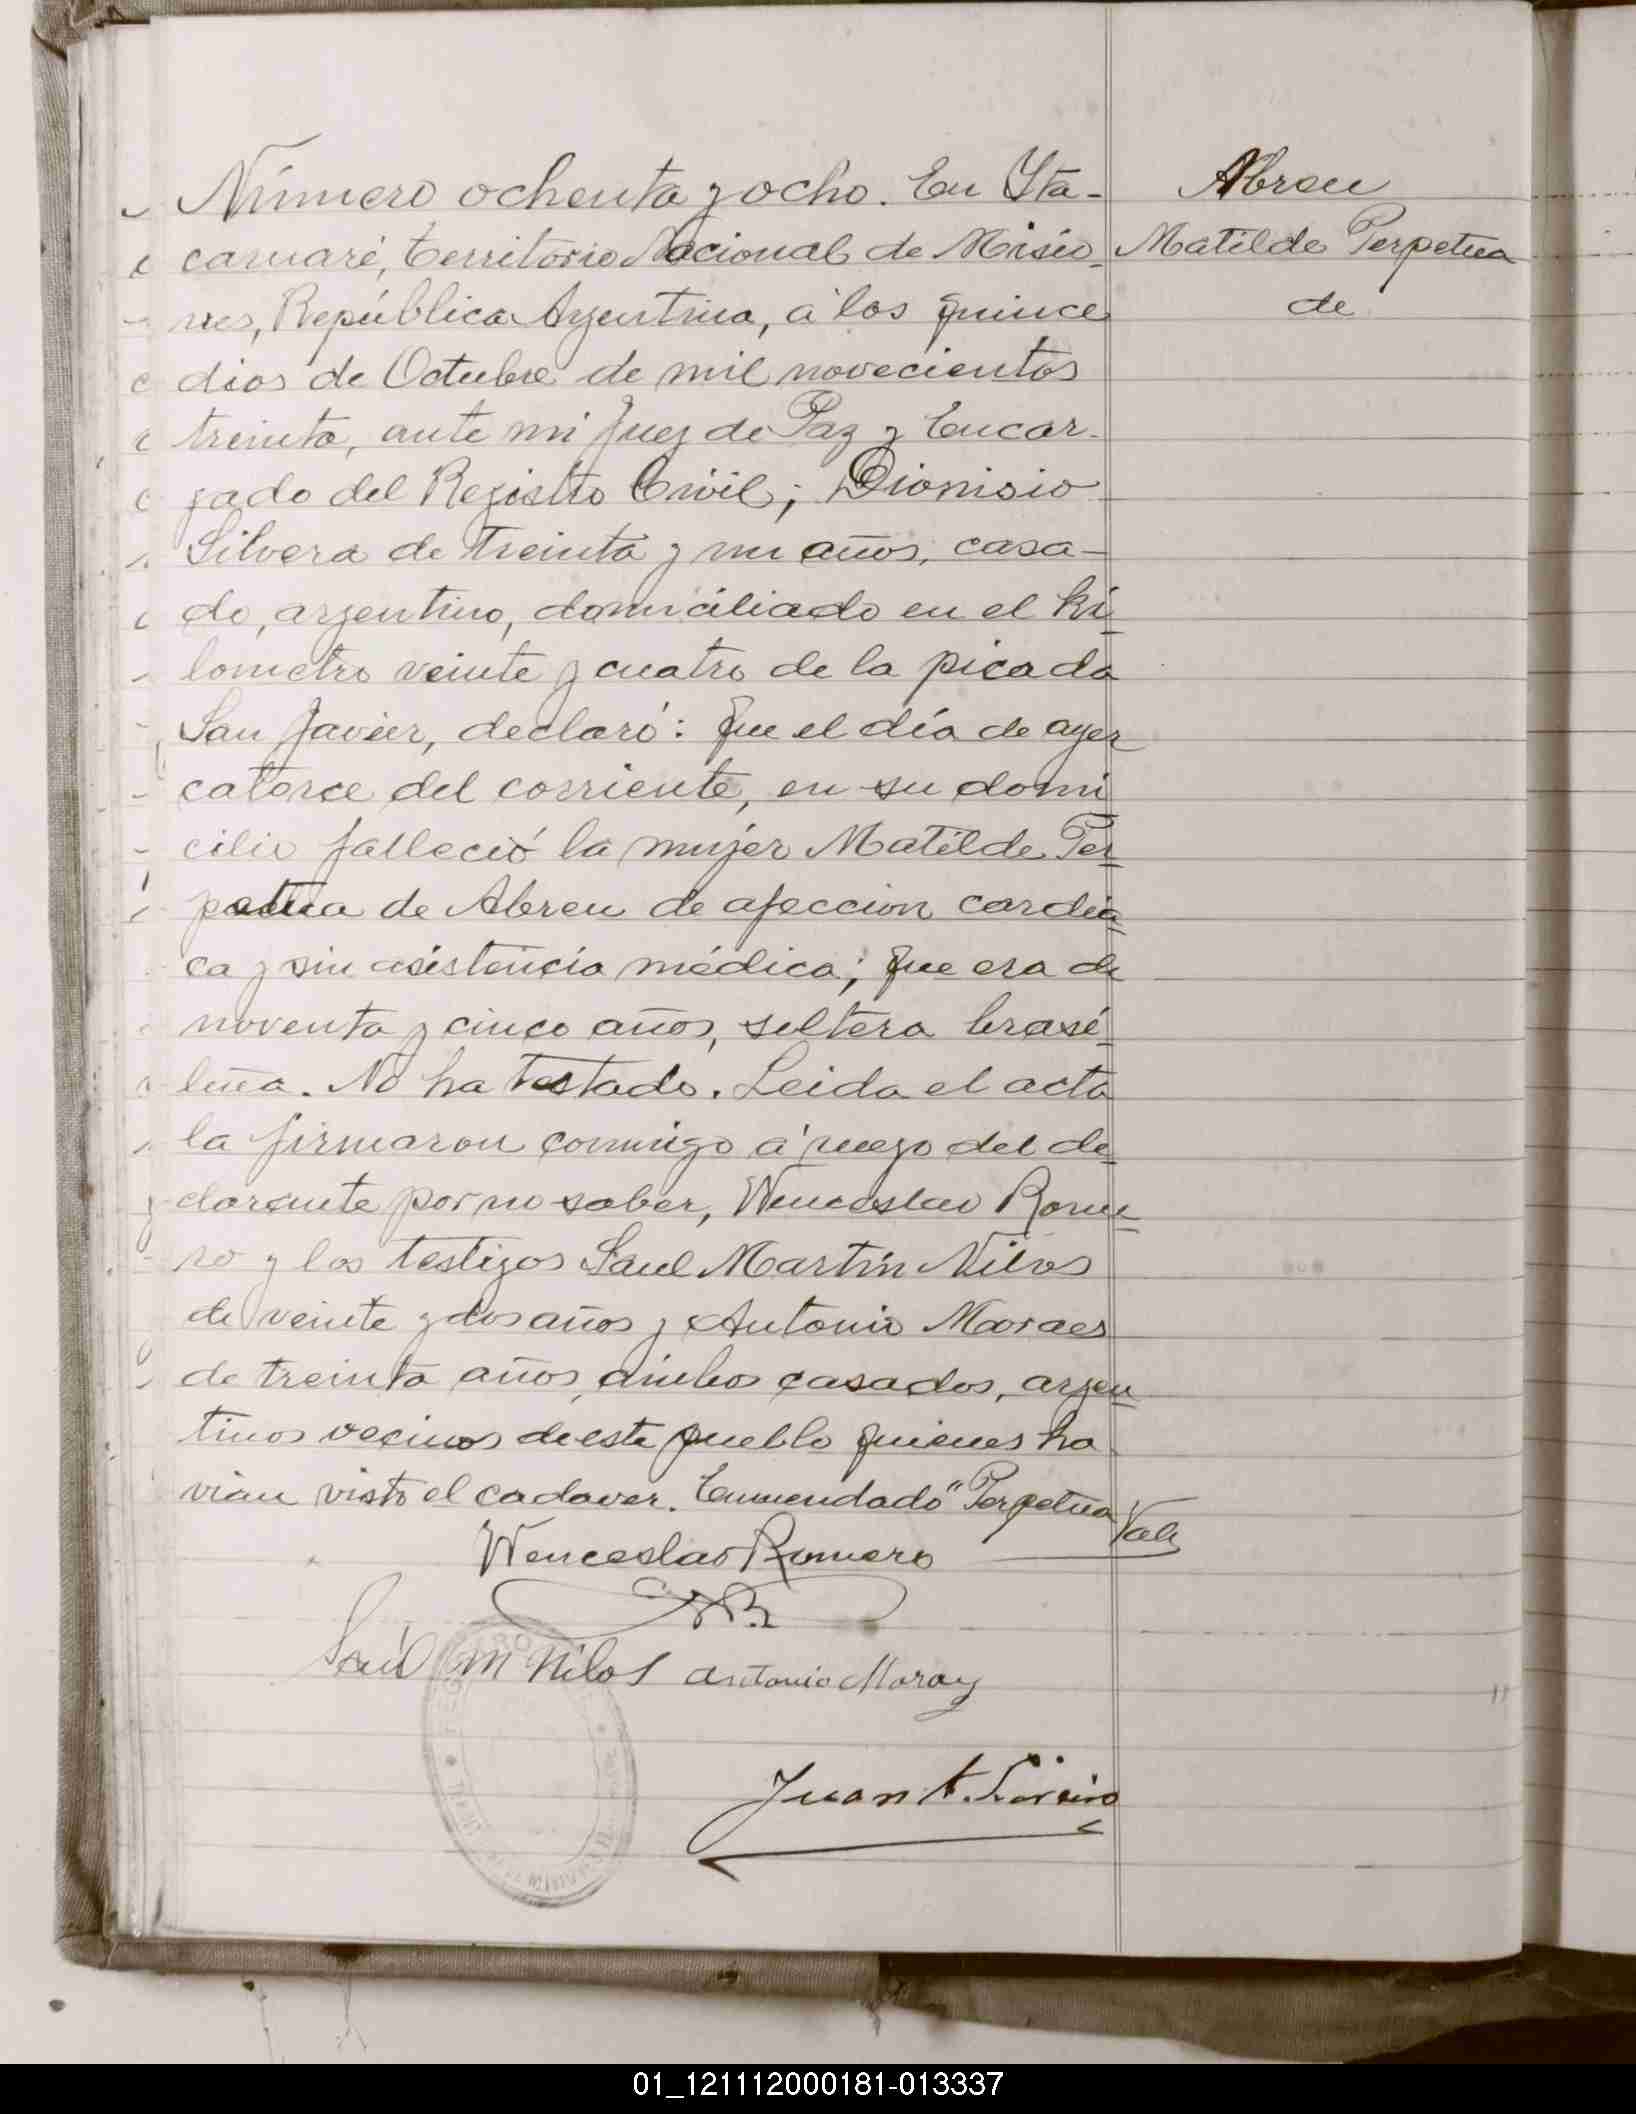 Número ochenta y ocho. En Yta-
caruaré, territorio Nacional de Misio-
nes, República Argentina, a los quince
dias de Octubre de mil novecientos
treinta, ante mi Juez de Paz y Encar-
gado del Registro Civil; Dionisio
Silvera de treinta y un años, casa-
do, argentino, domiciliado en el ki-
lometro veinte y cuatro de la picada
San Javier, declaró: Que el día de ayer
catorce del corriente, en su domi
cilio falleció la mujer Matilde Per
petua de Abreu de afeccion cardia
ca y sin asistencia médica; que era de
noventa y cinco años, soltera brasi-
leña. No ha testado. Leida el acta
la firmaron conmigo a ruego del de
clarante por no saber, Wenceslao Rome
ro y los testigos Saul Martín Nilos
de veinte y dos años y Antonio Moraes
de treinta años, ambos casados, argen
tinos vecinos de este pueblo quienes ha
vian visto el cadaver. Enmendado "Perpetua Vale
Wenceslao Romero
Saúl M Nilos Antonio Moray
Juan A.
Abreu
Matilde Perpetua
de
01_121112000181-013337